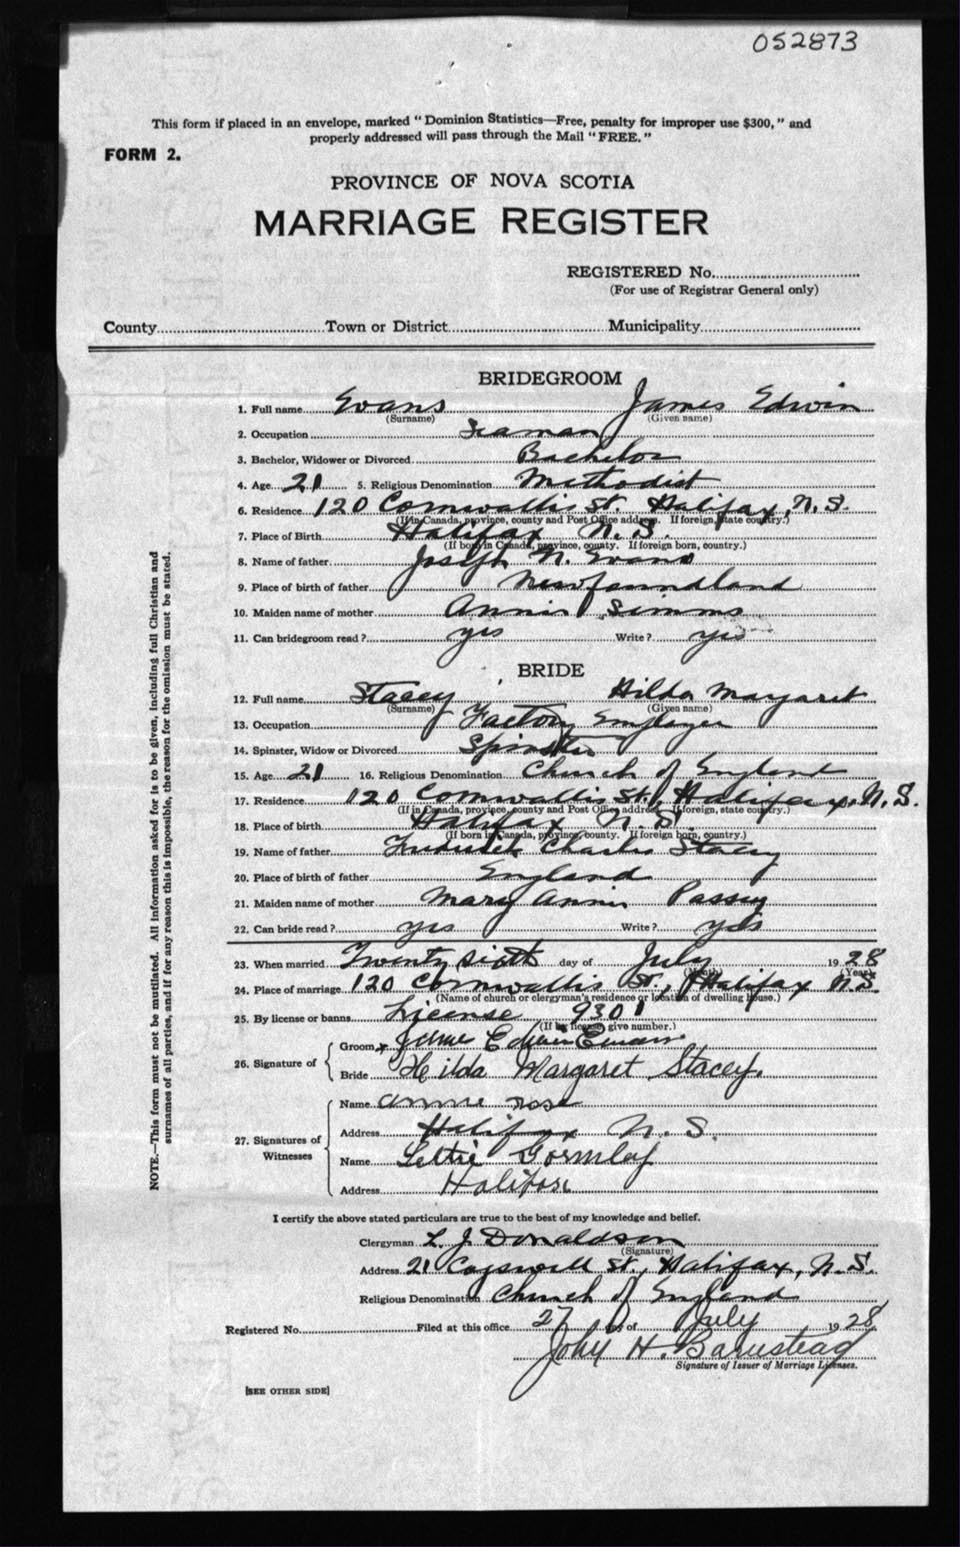 052873
This form if placed in an envelope, marked "Dominion Statistics—Free, penalty for improper use $300," and
properly addressed will pass through the Mail "FREE."
FORM 2.
PROVINCE OF NOVA SCOTIA
MARRIAGE REGISTER
REGISTERED No.
(For use of Registrar General only)
County Town or District Municipality
BRIDEGROOM
1. Full name Evans James Edwin
(Surname) (Given name)
2. Occupation Seaman
3. Bachelor, Widower or Divorced Bachelor
4. Age 21 5. Religious Denomination Methodist
6. Residence 120 Cornwallis St. Halifax, N.S.
(If in Canada, province, county and Post Office address. If foreign, state country.)
7. Place of Birth Halifax N.S.
(If born in Canada, province, county. If foreign born, country.)
8. Name of father Joseph N. Evans
9. Place of birth of father Newfoundland
10. Maiden name of mother Annie Simms
11. Can bridegroom read? yes Write? yes
BRIDE
12. Full name Stacey Hilda Margaret
(Surname) (Given name)
13. Occupation Factory Employee
14. Spinster, Widow or Divorced Spinster
15. Age 21 16. Religious Denomination Church of England
17. Residence 120 Cornwallis St., Halifax, N.S.
(If in Canada, province, county and Post Office address. If foreign, state country.)
18. Place of birth Halifax N.S.
(If born in Canada, province, county. If foreign born, country.)
19. Name of father Frederick Charles Stacey
20. Place of birth of father England
21. Maiden name of mother Mary Annie Passey
22. Can bride read? yes Write? yes
23. When married Twenty sixth day of July 1928
(Month) (Year)
24. Place of marriage 120 Cornwallis St., Halifax N.S.
(Name of church or clergyman's residence or location of dwelling house.)
25. By license or banns License 9301
(If by license, give number.)
26. Signature of
Groom x James Edwin Evans
Bride Hilda Margaret Stacey.
27. Signatures of Witnesses
Name Annie Rose
Address Halifax N.S.
Name Lettie Gormley
Address Halifax
I certify the above stated particulars are true to the best of my knowledge and belief.
Clergyman L. J. Donaldson
(Signature)
Address 21 Cogswell St., Halifax, N.S.
Religious Denomination Church of England
Registered No. Filed at this office 27 day of July 1928
John H. Barnstead
Signature of Issuer of Marriage Licenses.
[SEE OTHER SIDE]
NOTE.—This form must not be mutilated. All information asked for is to be given, including full Christian and
surnames of all parties, and if for any reason this is impossible, the reason for the omission must be stated.